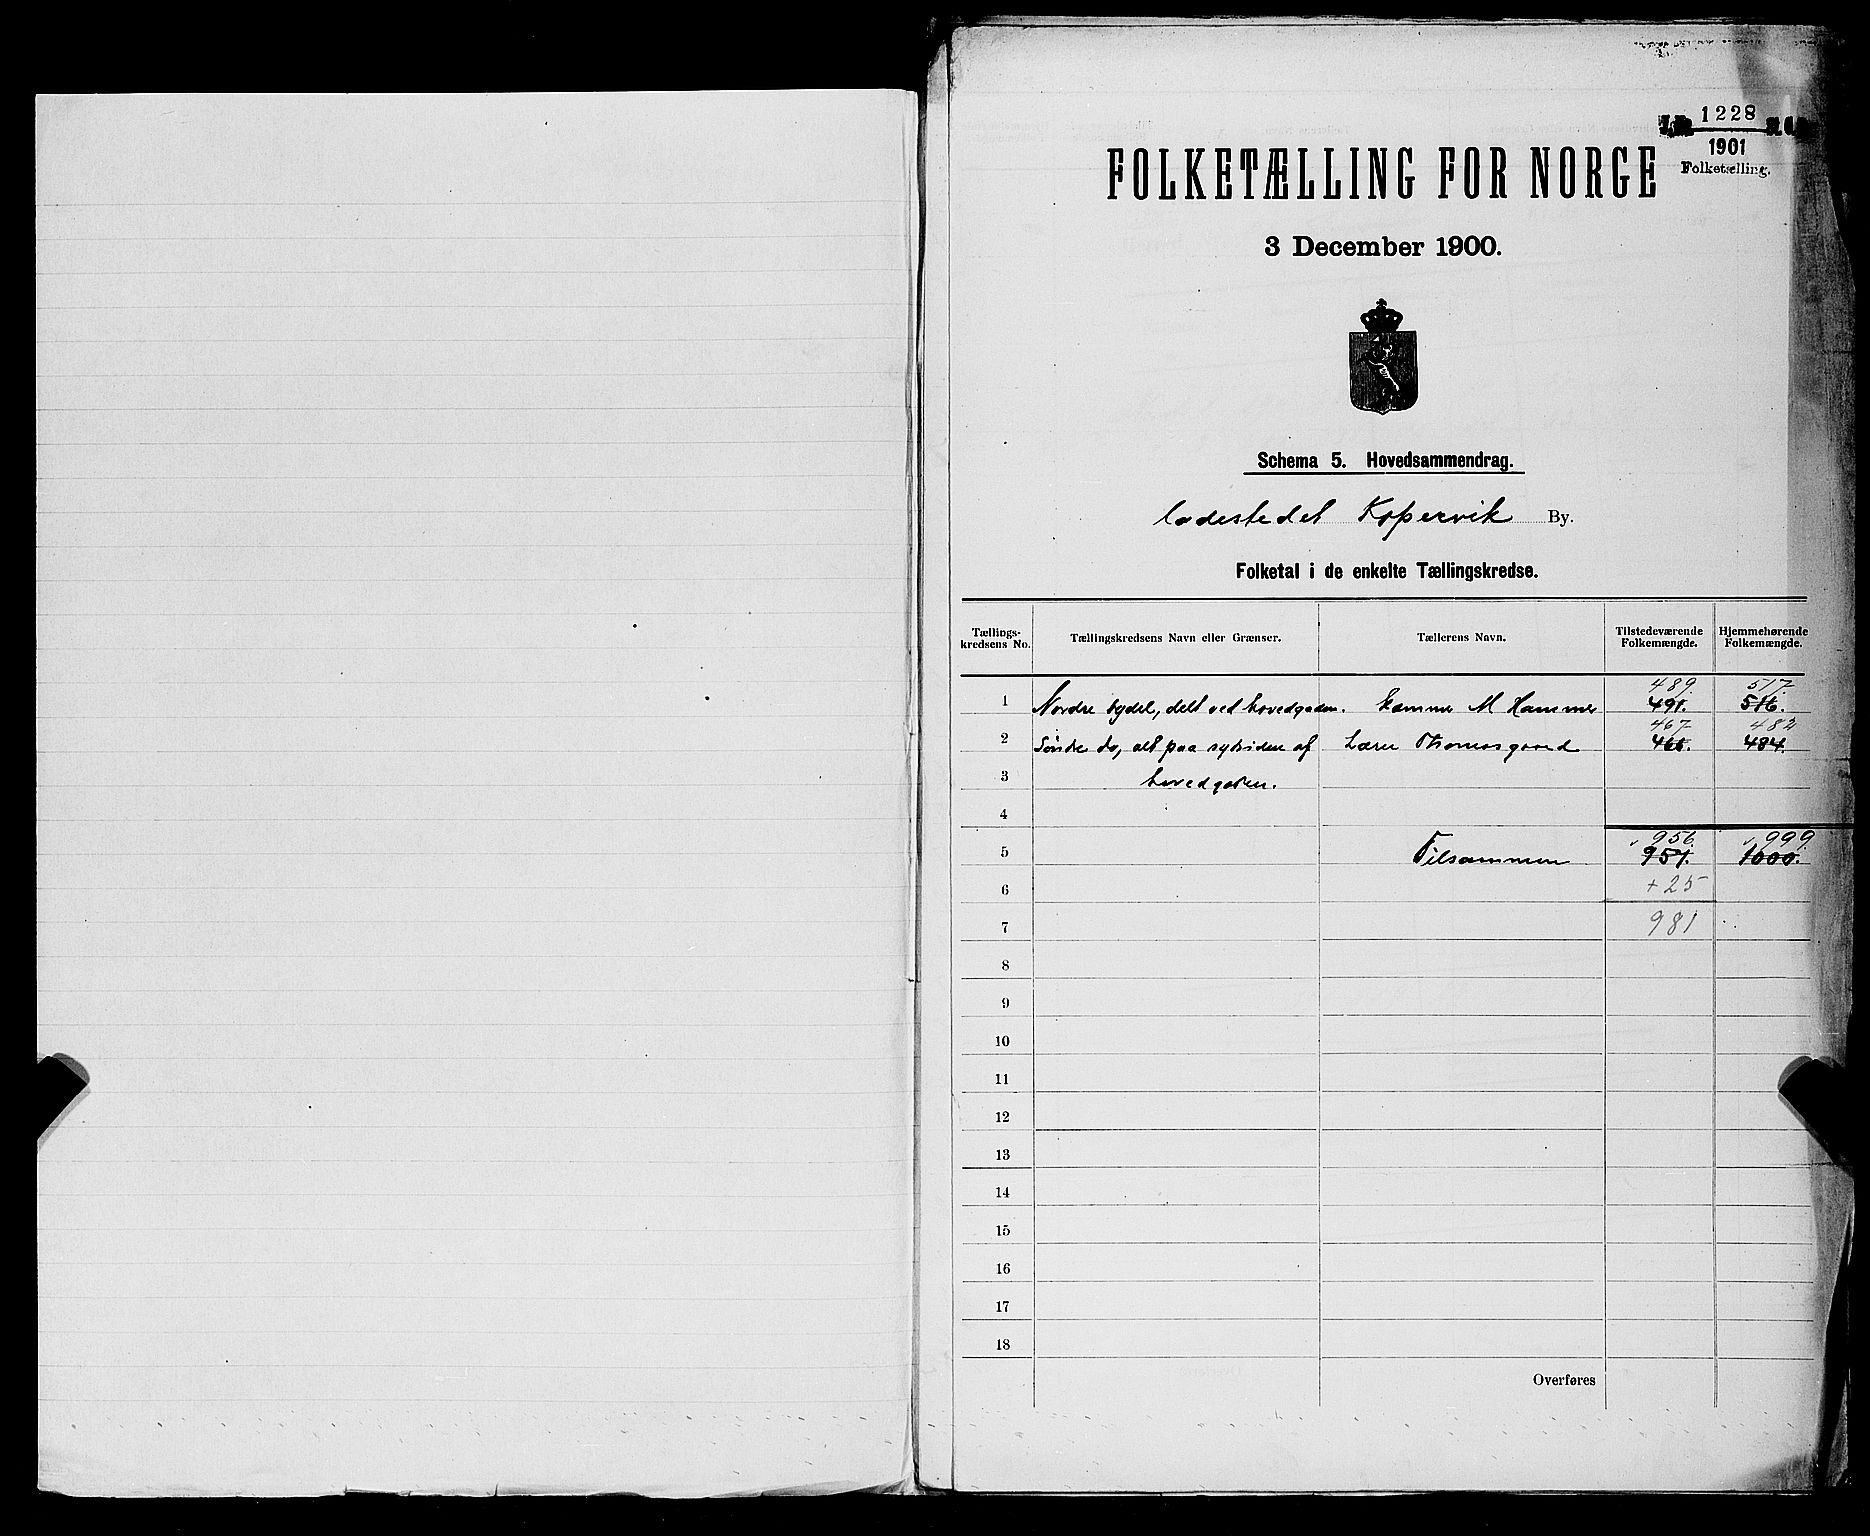 1228
1901
Folketælling.
FOLKETÆLLING FOR NORGE
3 December 1900.
Schema 5. Hovedsammendrag.
ladestedet Kopervik By.
Folketal i de enkelte Tællingskredse.
Tællings-kredsens No. Tællingskredsens Navn eller Grænser. Tællerens Navn. Tilstedeværende Folkemængde. Hjemmehørende Folkemængde.
489. 517.
1 Nordre bydel, delt ved hovedgaden. Kæmner M Hammer 491. 516.
467. 482
2 Søndre do, alt paa sydsiden af Lærer Thomasgaard 484.
3 hovedgaden.
4
956. 999
5 Tilsammen 957. 1000.
6 + 25
7 981
8
9
10
11
12
13
14
15
16
17
18
Overføres